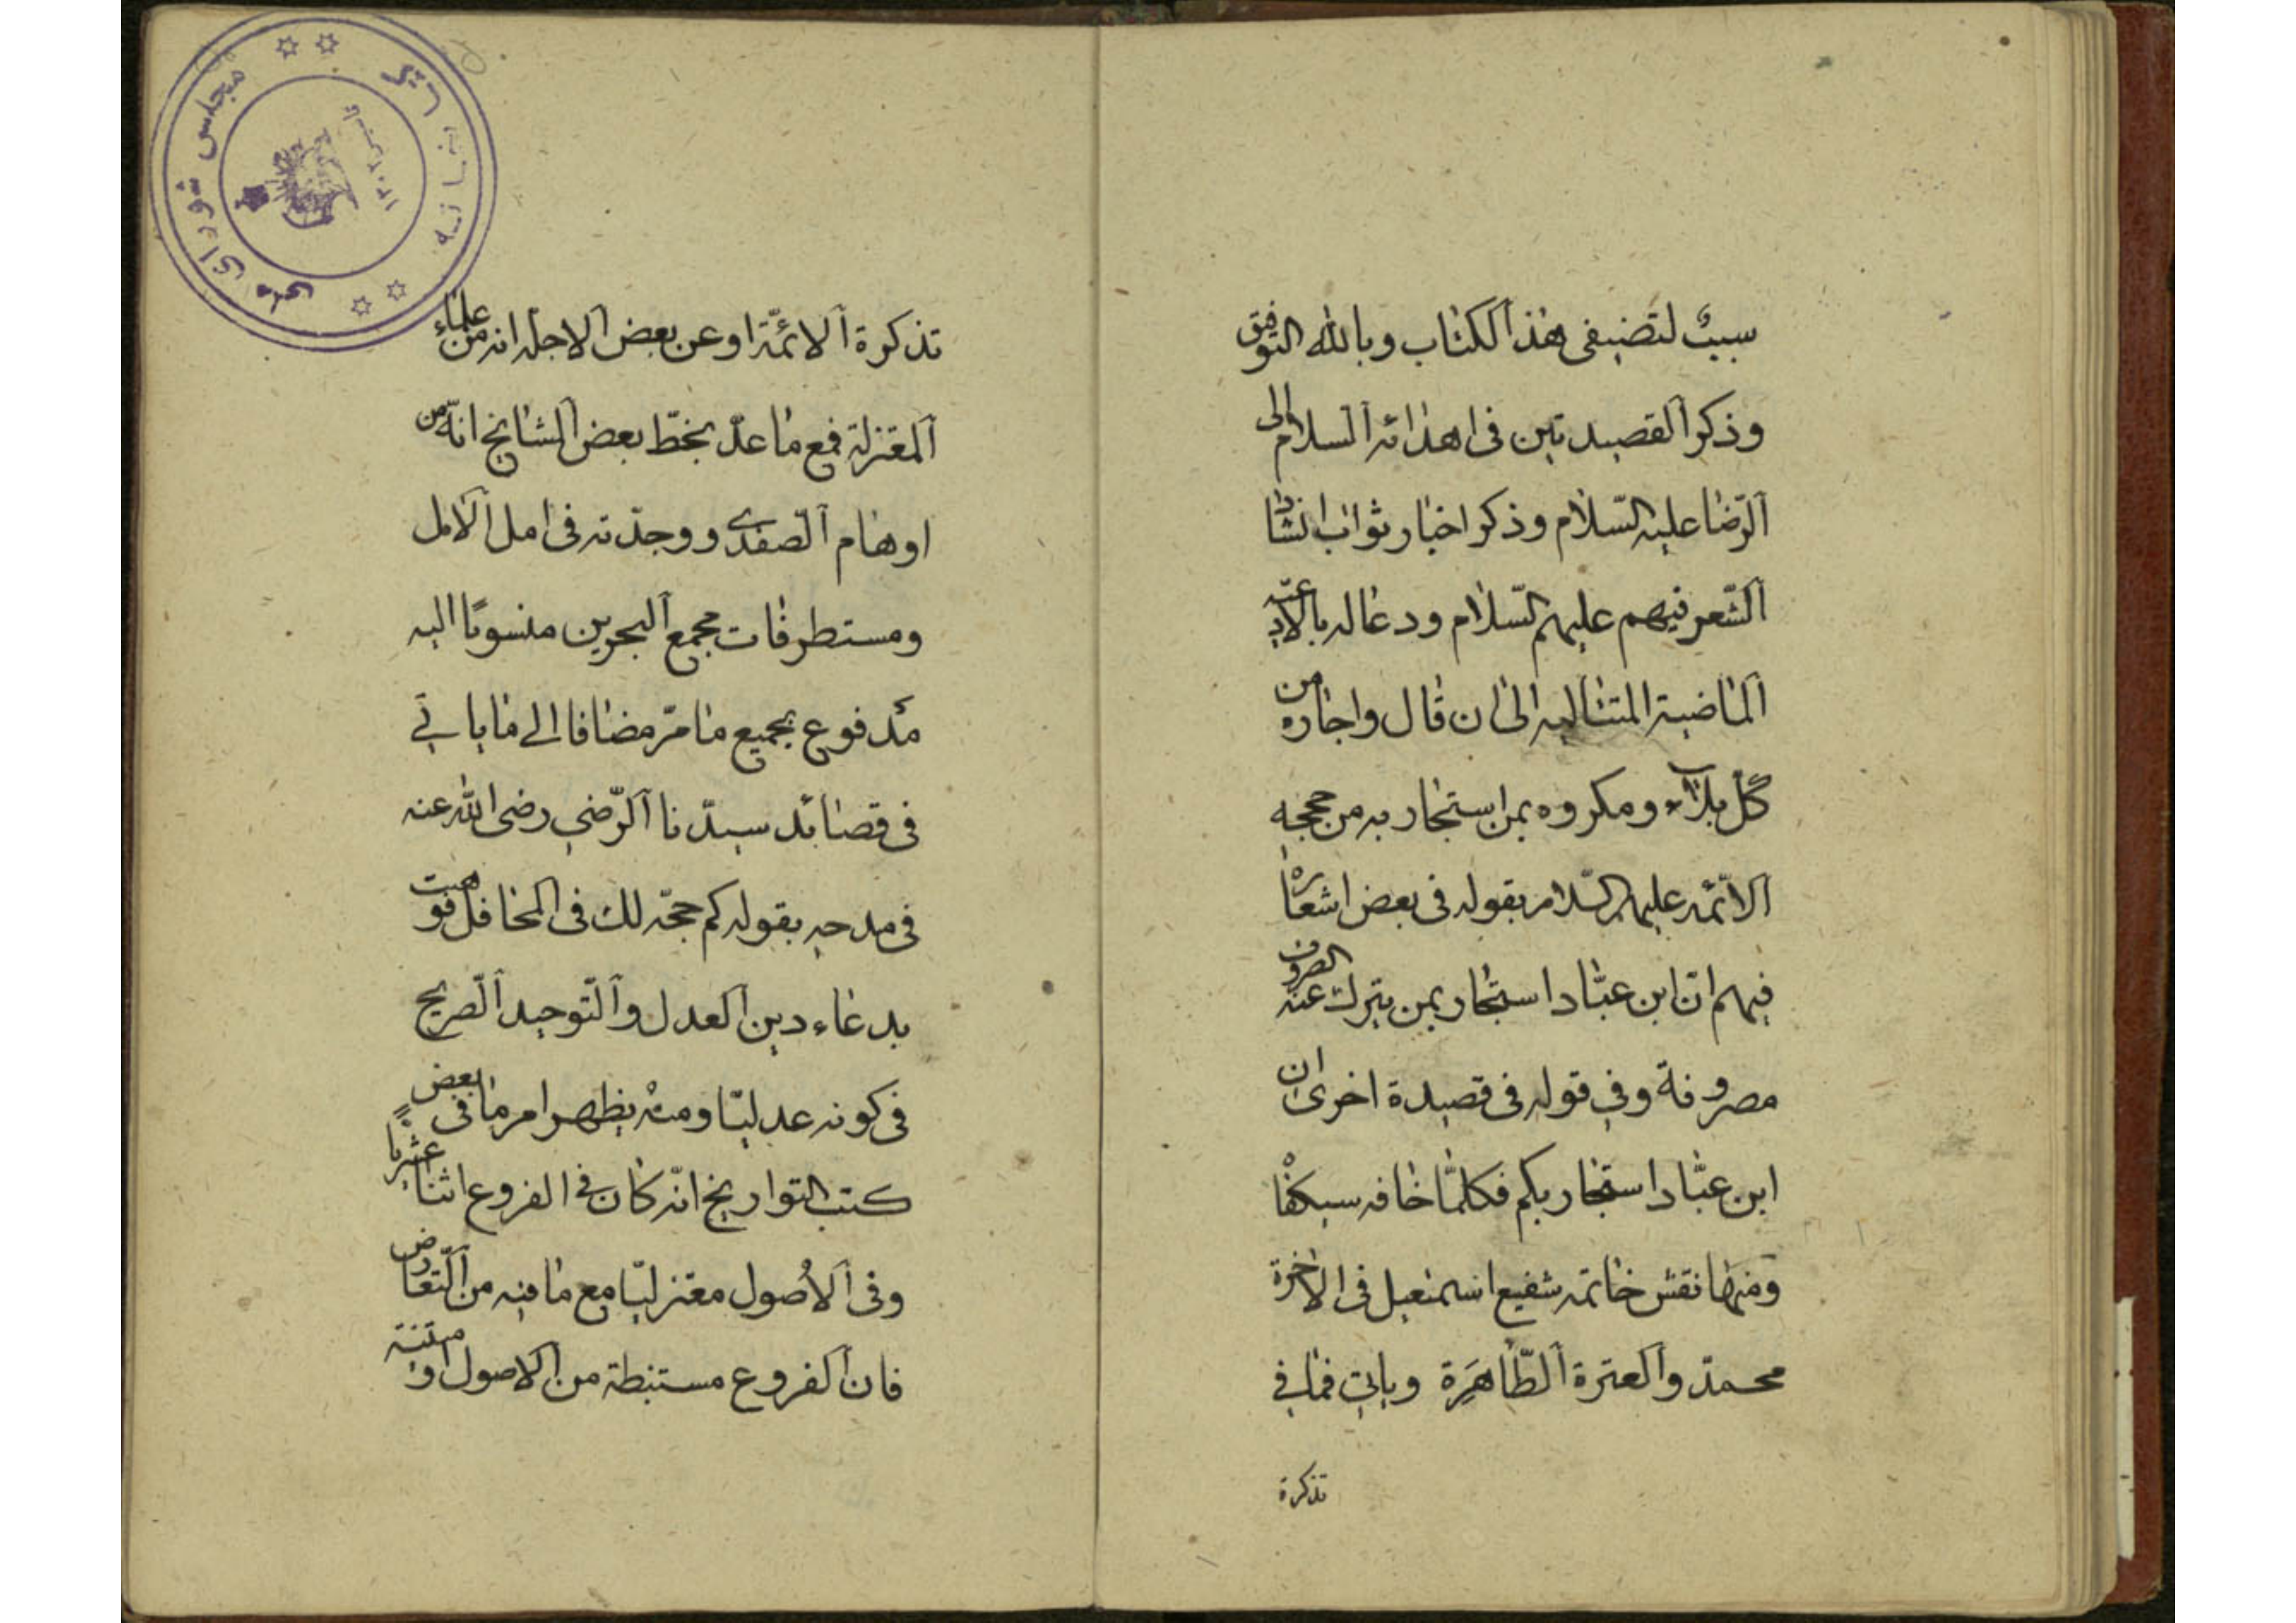 سببٌ لتصنيفى هذا الكتاب وبالله التوفيق
وذكر القصيدتين فى اهدائه السلام الى
الرّضا عليه السّلام وذكر اخبار ثواب انشاد
الشّعر فيهم عليهم السّلام ودعا له بالادعية
الماضية المتتاليه الى ان قال واجاره من
كلّ بلاء ومكروه بمن استجار به من حججه
الائمّه عليهم السّلام بقوله فى بعض اشعاره
فيهم انّ ابن عبّاد استجار بمن يترك عنه الصروف
مصروفة وفي قوله فى قصيدة اخرى ان
ابن عبّاد استجار بكم فكلمّا خافه سيكفا
ومنها نقش خاتمه شفيع اسمعيل فى الاخرة
محمدّ والعترة الطّاهَرِة وباتي فما في
تذكرة
تذكرة الائمّة او عن بعض الاجله انه من علماء
المعتزلة فمع ما عدّ بخطّ بعض المشايخ انّه من
اوهام الصفدي ووجدّته فى امل الامل
ومستطرفات مجمع البحرين منسوبًا اليه
مدفوع بجميع ما مرّ مضافا الى ما ياتي
فى قصائد سيدّنا الرّضي رضى الله عنه
فى مدحه بقوله كم حجّه لك فى المحافل فوهت
بدعاء دين العدل والتّوحيد الصّريح
فى كونه عدليّا ومنه يظهر امر ما فى بعض
كتب التواريخ انّه كان فى الفروع اثنا عشريًا
وفى الاُصول معتزليّا مع ما فيه من التّعارض
فان الفروع مستنبطة من الاصول او مبتنية
كتابخانه مجلس شوراى ملى